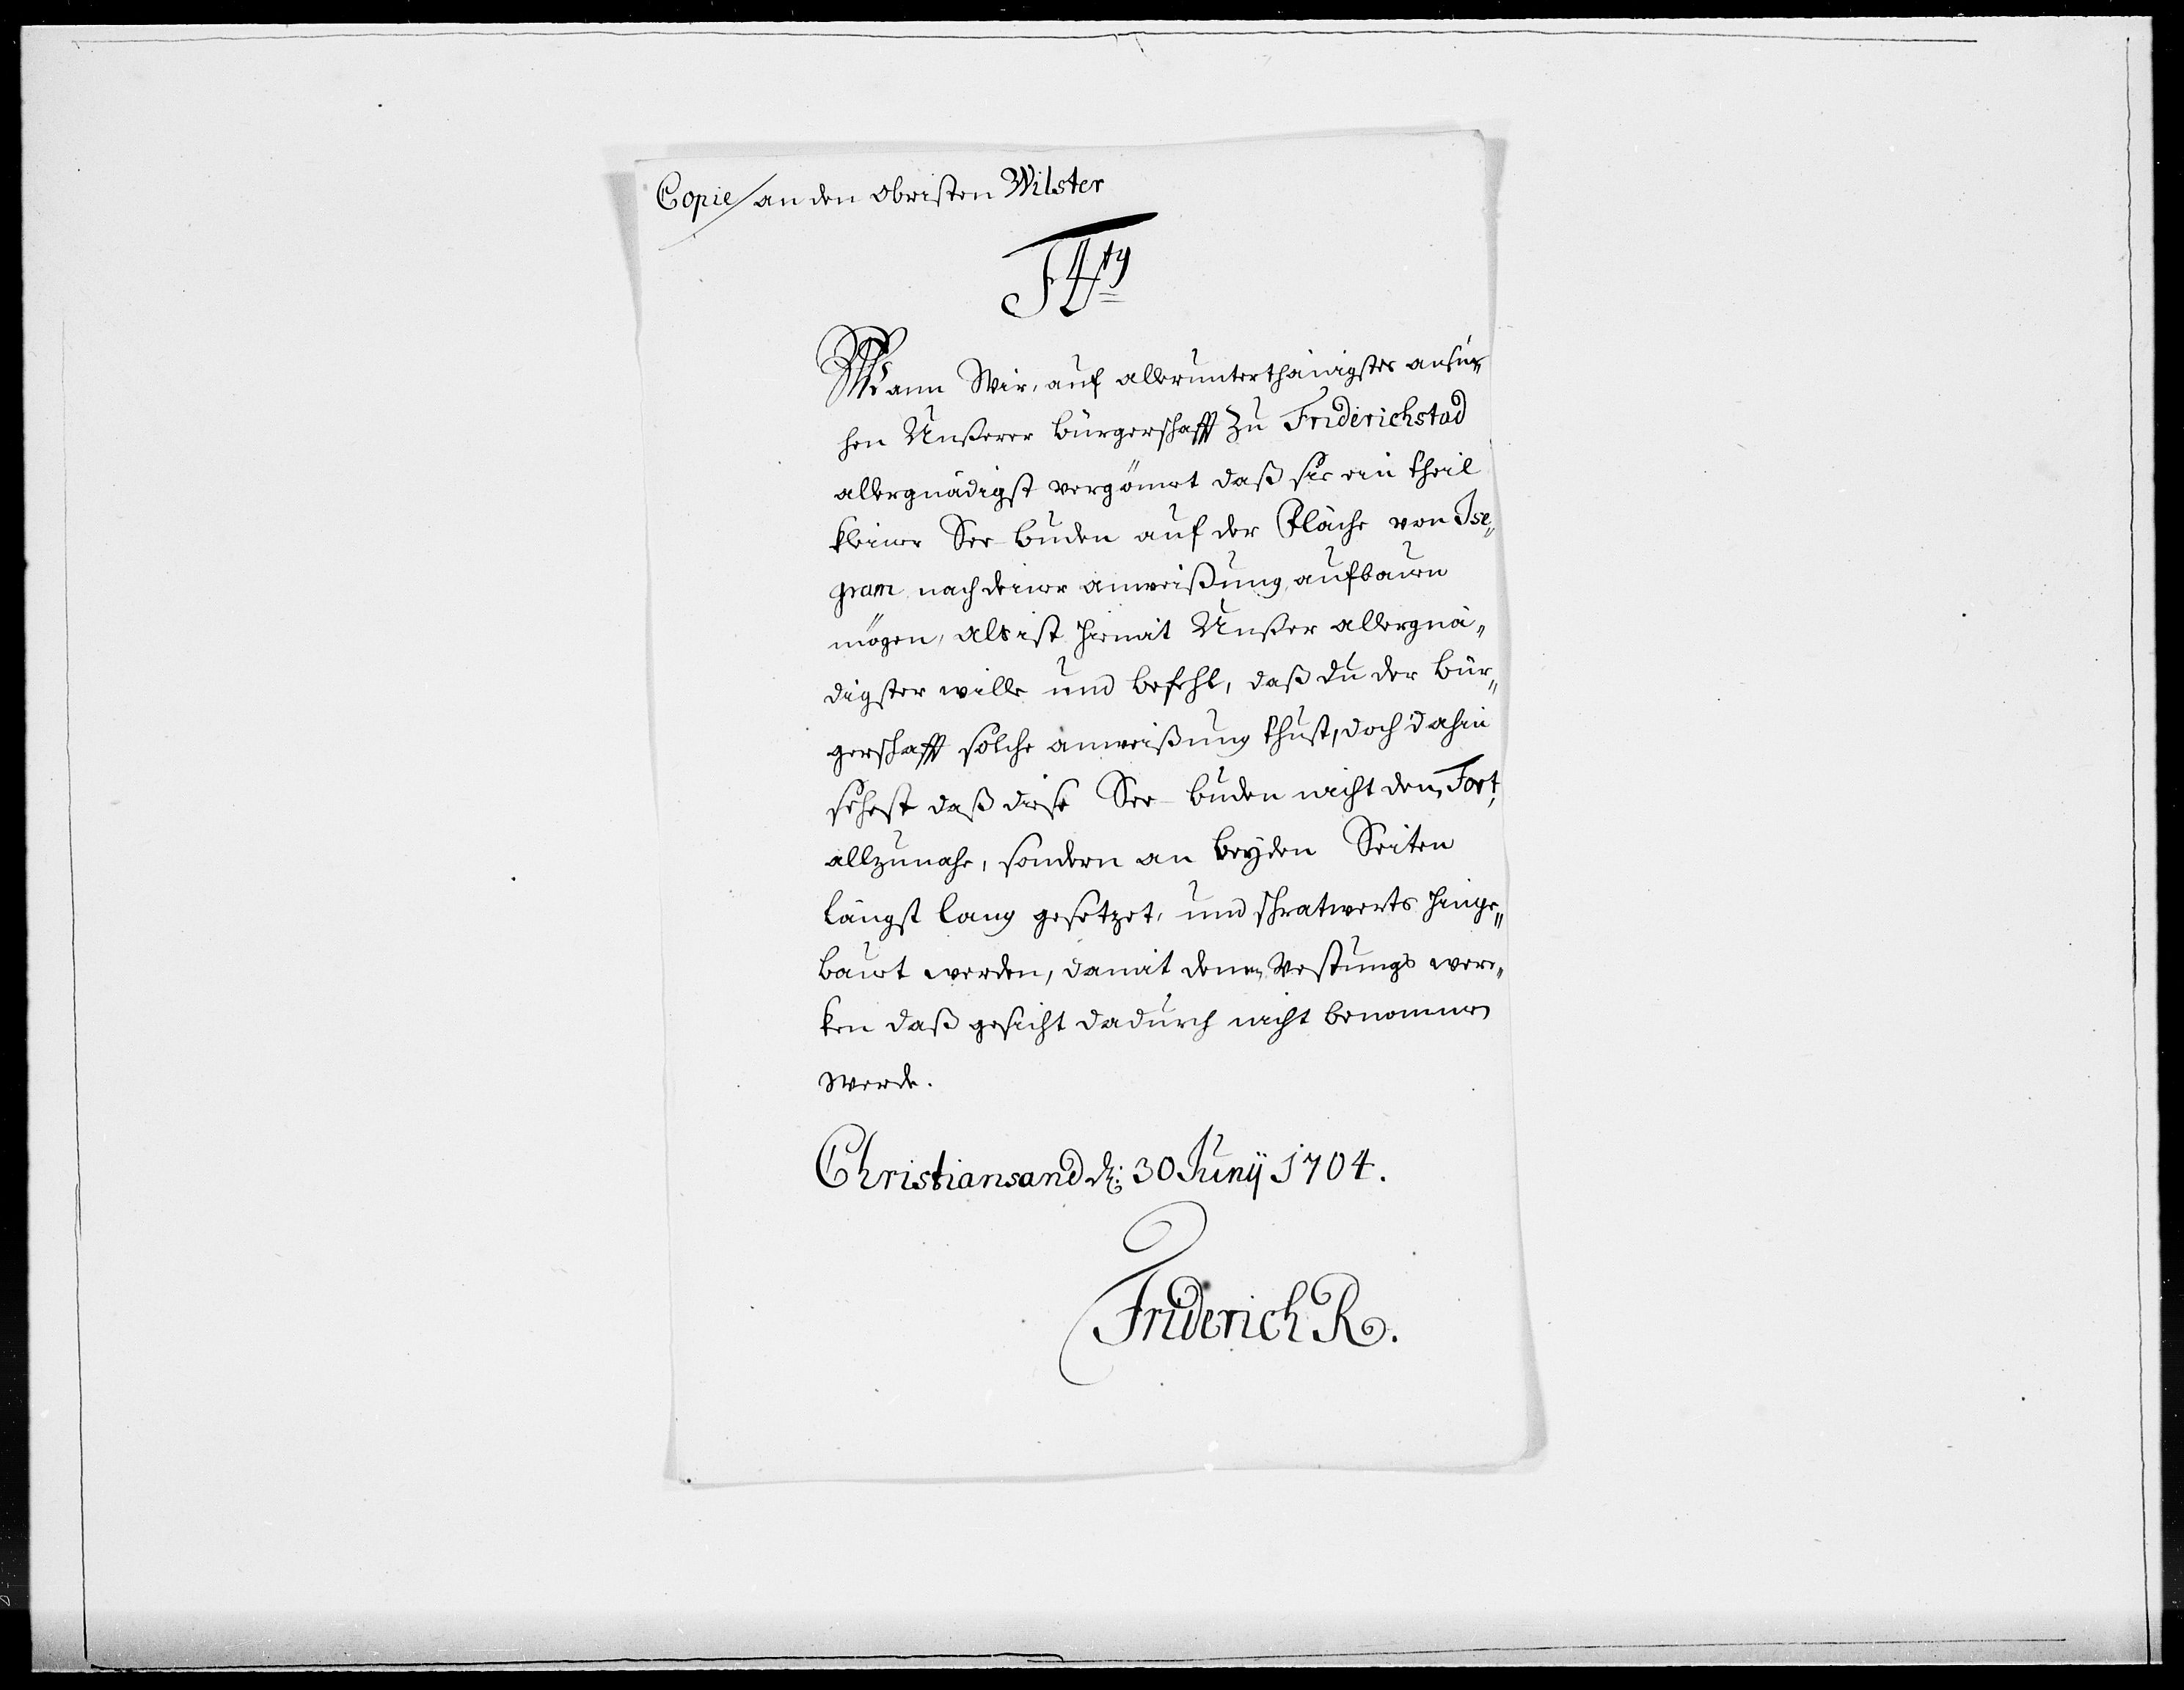 Copie an den Obristen Wilster
F 4ty
Wann Wir, auf allerunterthänigstes ansu¬
chen Unßerer bürgerschafft zu Friderichstad
allergnädigst vergönnet daß sie ein theil
kleiner See buden auf der Fläche von Ise¬
gram nach deiner anweißung aufbauen
mögen, als ist hiemit Unßer allergnä¬
digster wille und befehl, daß du der bür¬
gerschafft solche anweißung thust, doch dahin
sehest daß diese See-buden nicht dem Fort,
allzunahe, sondern an beyden Seiten
längst lang gesetzet, und werts hinge¬
bauet werden, damit denen Vestungs wer¬
ken daß gesicht dadurch nicht benommen
werde.
Christiansand d: 30 Junij 1704.
Friderich R.